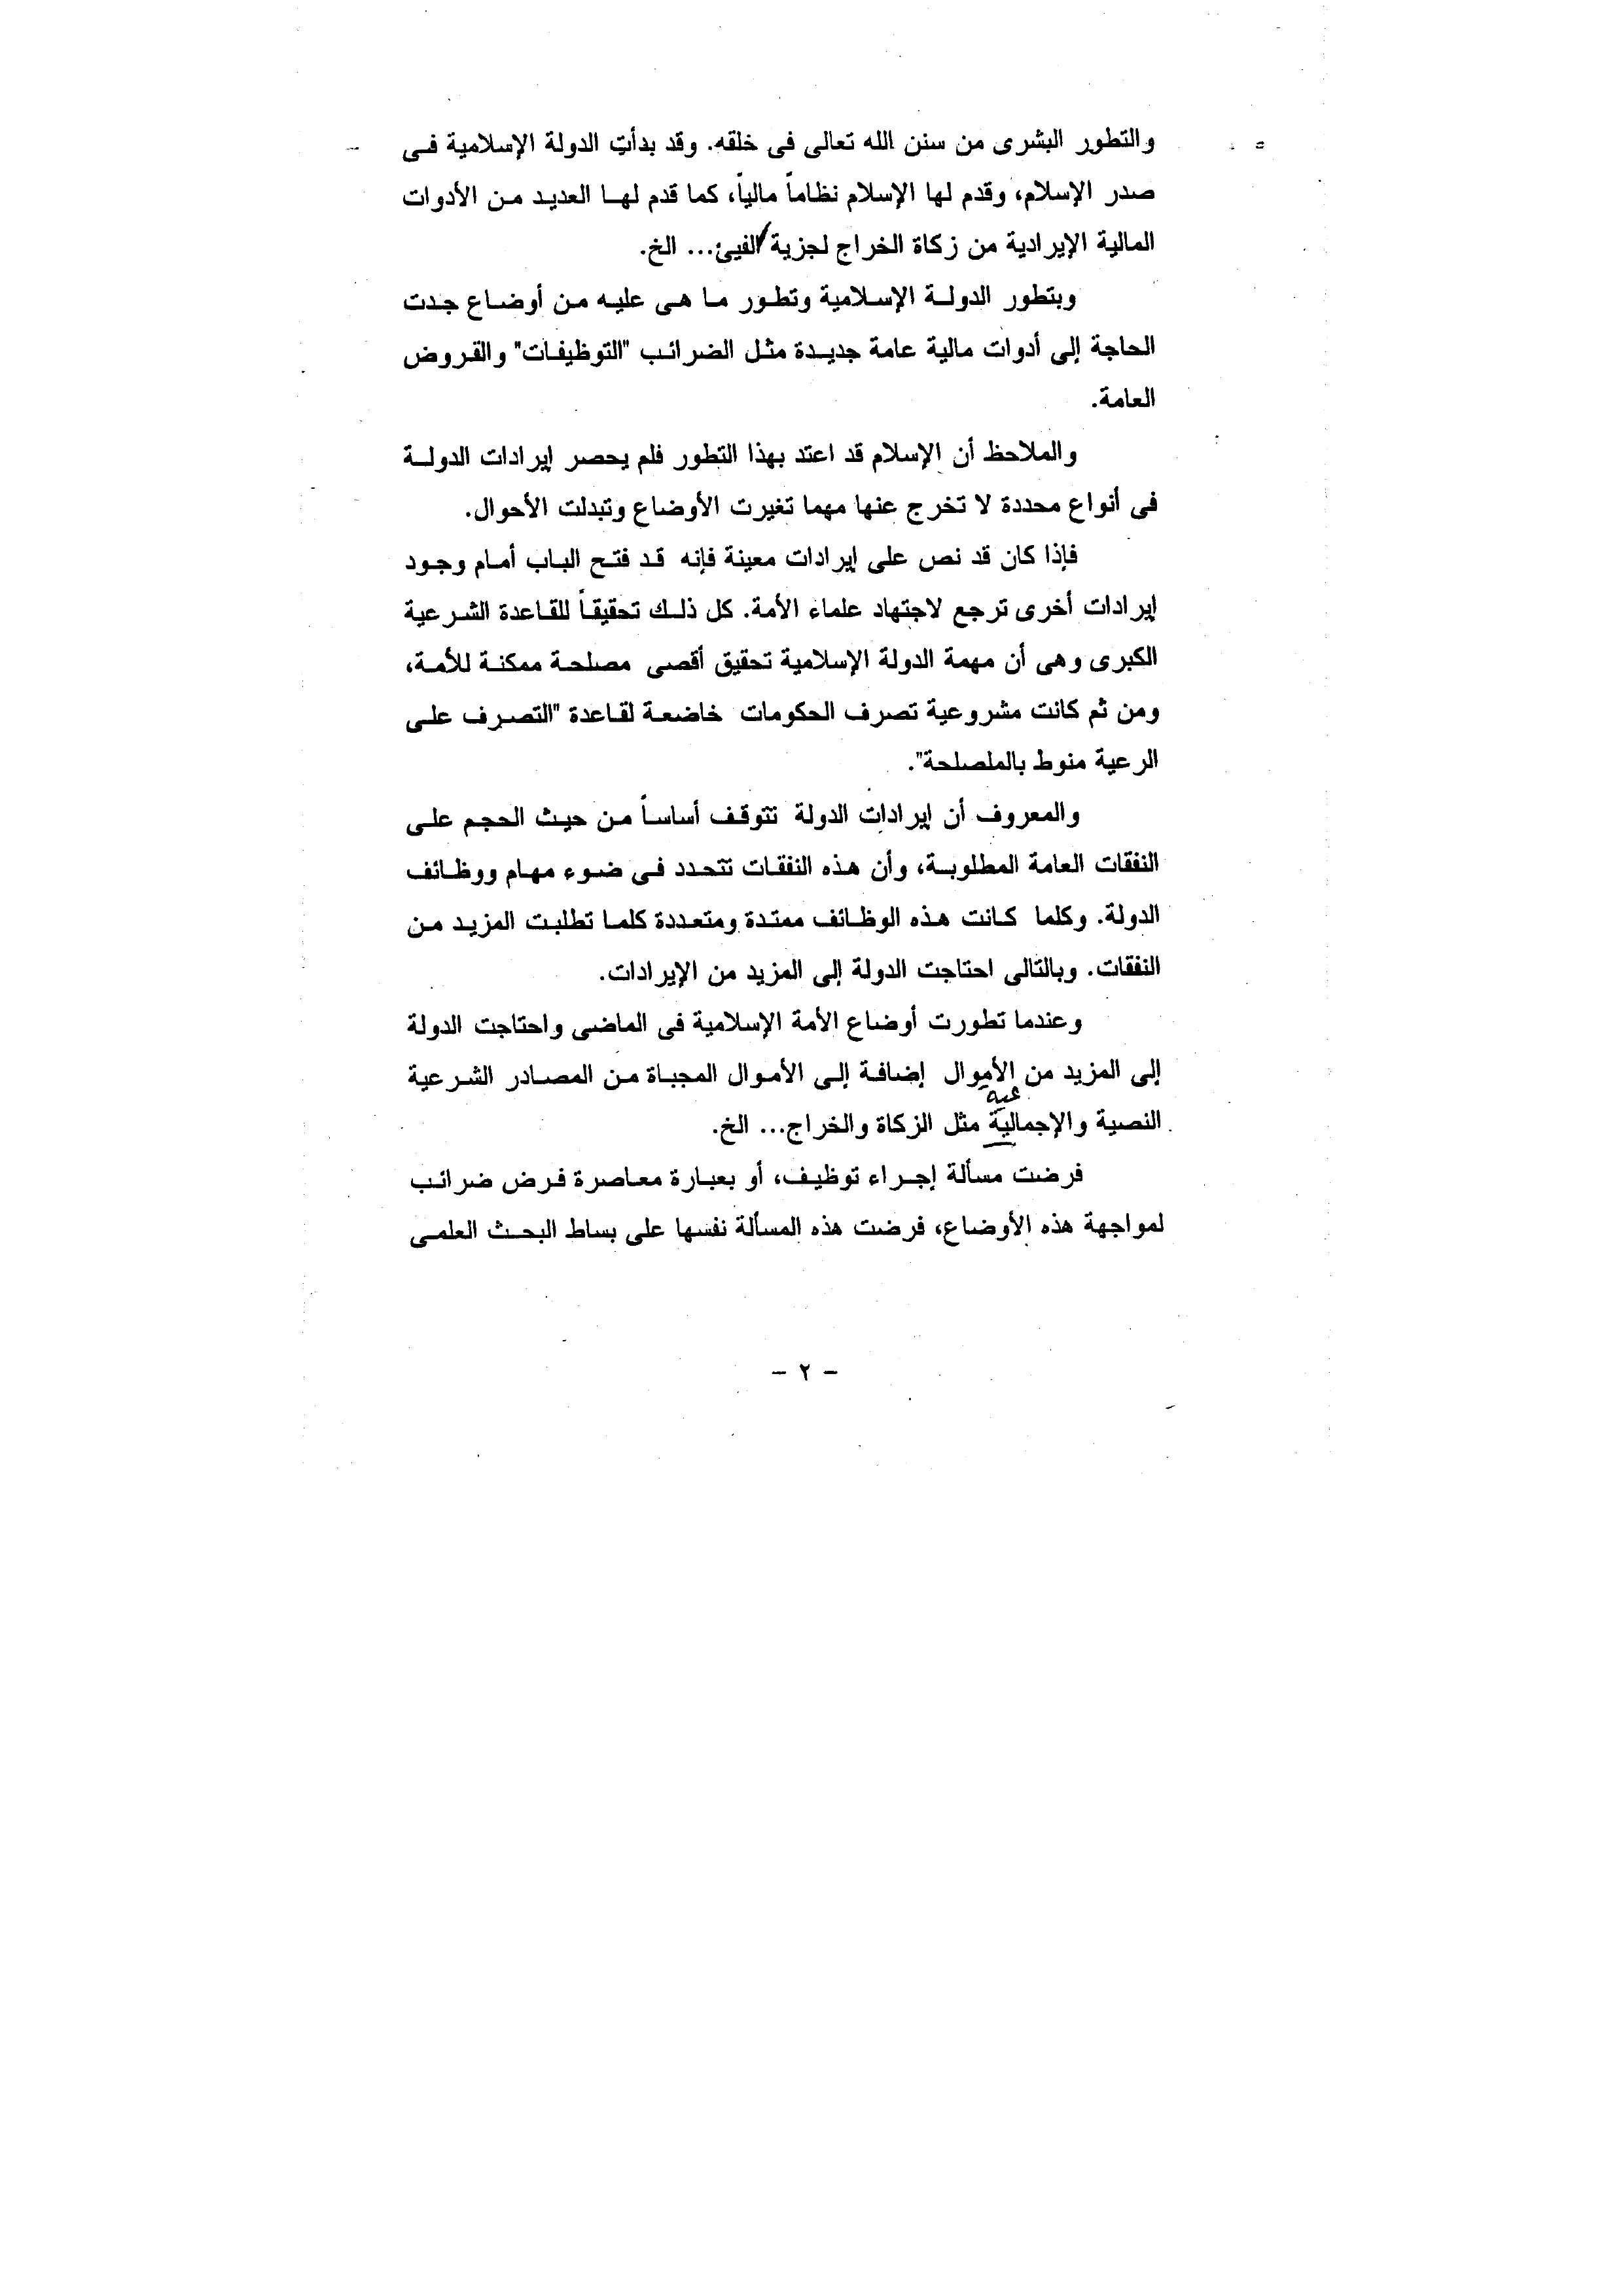 والتطور البشرى من سنن الله تعالى فى خلقه. وقد بدأت الدولة الإسلامية فى
صدر الإسلام، وقدم لها الإسلام نظاماً مالياً، كما قدم لها العديد من الأدوات
المالية الإيرادية من زكاة الخراج لجزية الفيئ... الخ.
وبتطور الدولة الإسلامية وتطور ما هى عليه من أوضاع جدت
الحاجة إلى أدوات مالية عامة جديدة مثل الضرائب "التوظيفات" والقروض
العامة.
والملاحظ أن الإسلام قد اعتد بهذا التطور فلم يحصر إيرادات الدولة
فى أنواع محددة لا تخرج عنها مهما تغيرت الأوضاع وتبدلت الأحوال.
فإذا كان قد نص على إيرادات معينة فإنه قد فتح الباب أمام وجود
إيرادات أخرى ترجع لاجتهاد علماء الأمة. كل ذلك تحقيقاً للقاعدة الشرعية
الكبرى وهى أن مهمة الدولة الإسلامية تحقيق أقصى مصلحة ممكنة للأمة،
ومن ثم كانت مشروعية تصرف الحكومات خاضعة لقاعدة "التصرف على
الرعية منوط بالملصلحة".
والمعروف أن إيرادات الدولة تتوقف أساساً من حيث الحجم على
النفقات العامة المطلوبة، وأن هذه النفقات تتحدد فى ضوء مهام ووظائف
الدولة. وكلما كانت هذه الوظائف ممتدة ومتعددة كلما تطلبت المزيد من
النفقات. وبالتالى احتاجت الدولة إلى المزيد من الإيرادات.
وعندما تطورت أوضاع الأمة الإسلامية فى الماضى واحتاجت الدولة
إلى المزيد من الأموال إضافة إلى الأموال المجباة من المصادر الشرعية
عية
النصية والإجمالية مثل الزكاة والخراج... الخ.
فرضت مسألة إجراء توظيف، أو بعبارة معاصرة فرض ضرائب
لمواجهة هذه الأوضاع، فرضت هذه المسألة نفسها على بساط البحث العلمى
- ٢ -